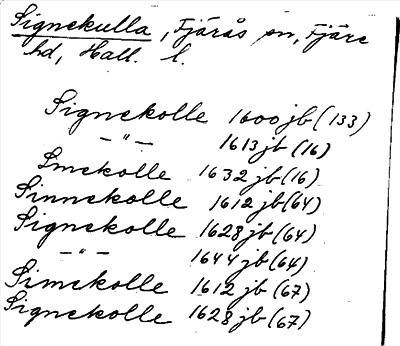 Signekulla, Fjärås sn, Fjäre
hd, Hall. l.
Signekolle 1600 jb (133)
— " — 1613 jb (16)
Smekolle 1632 jb (16)
Sinnekolle 1612 jb (64)
Signekolle 1628 jb (64)
— " — 1644 jb (64)
Simekolle 1612 jb (67)
Signekolle 1628 jb (67)